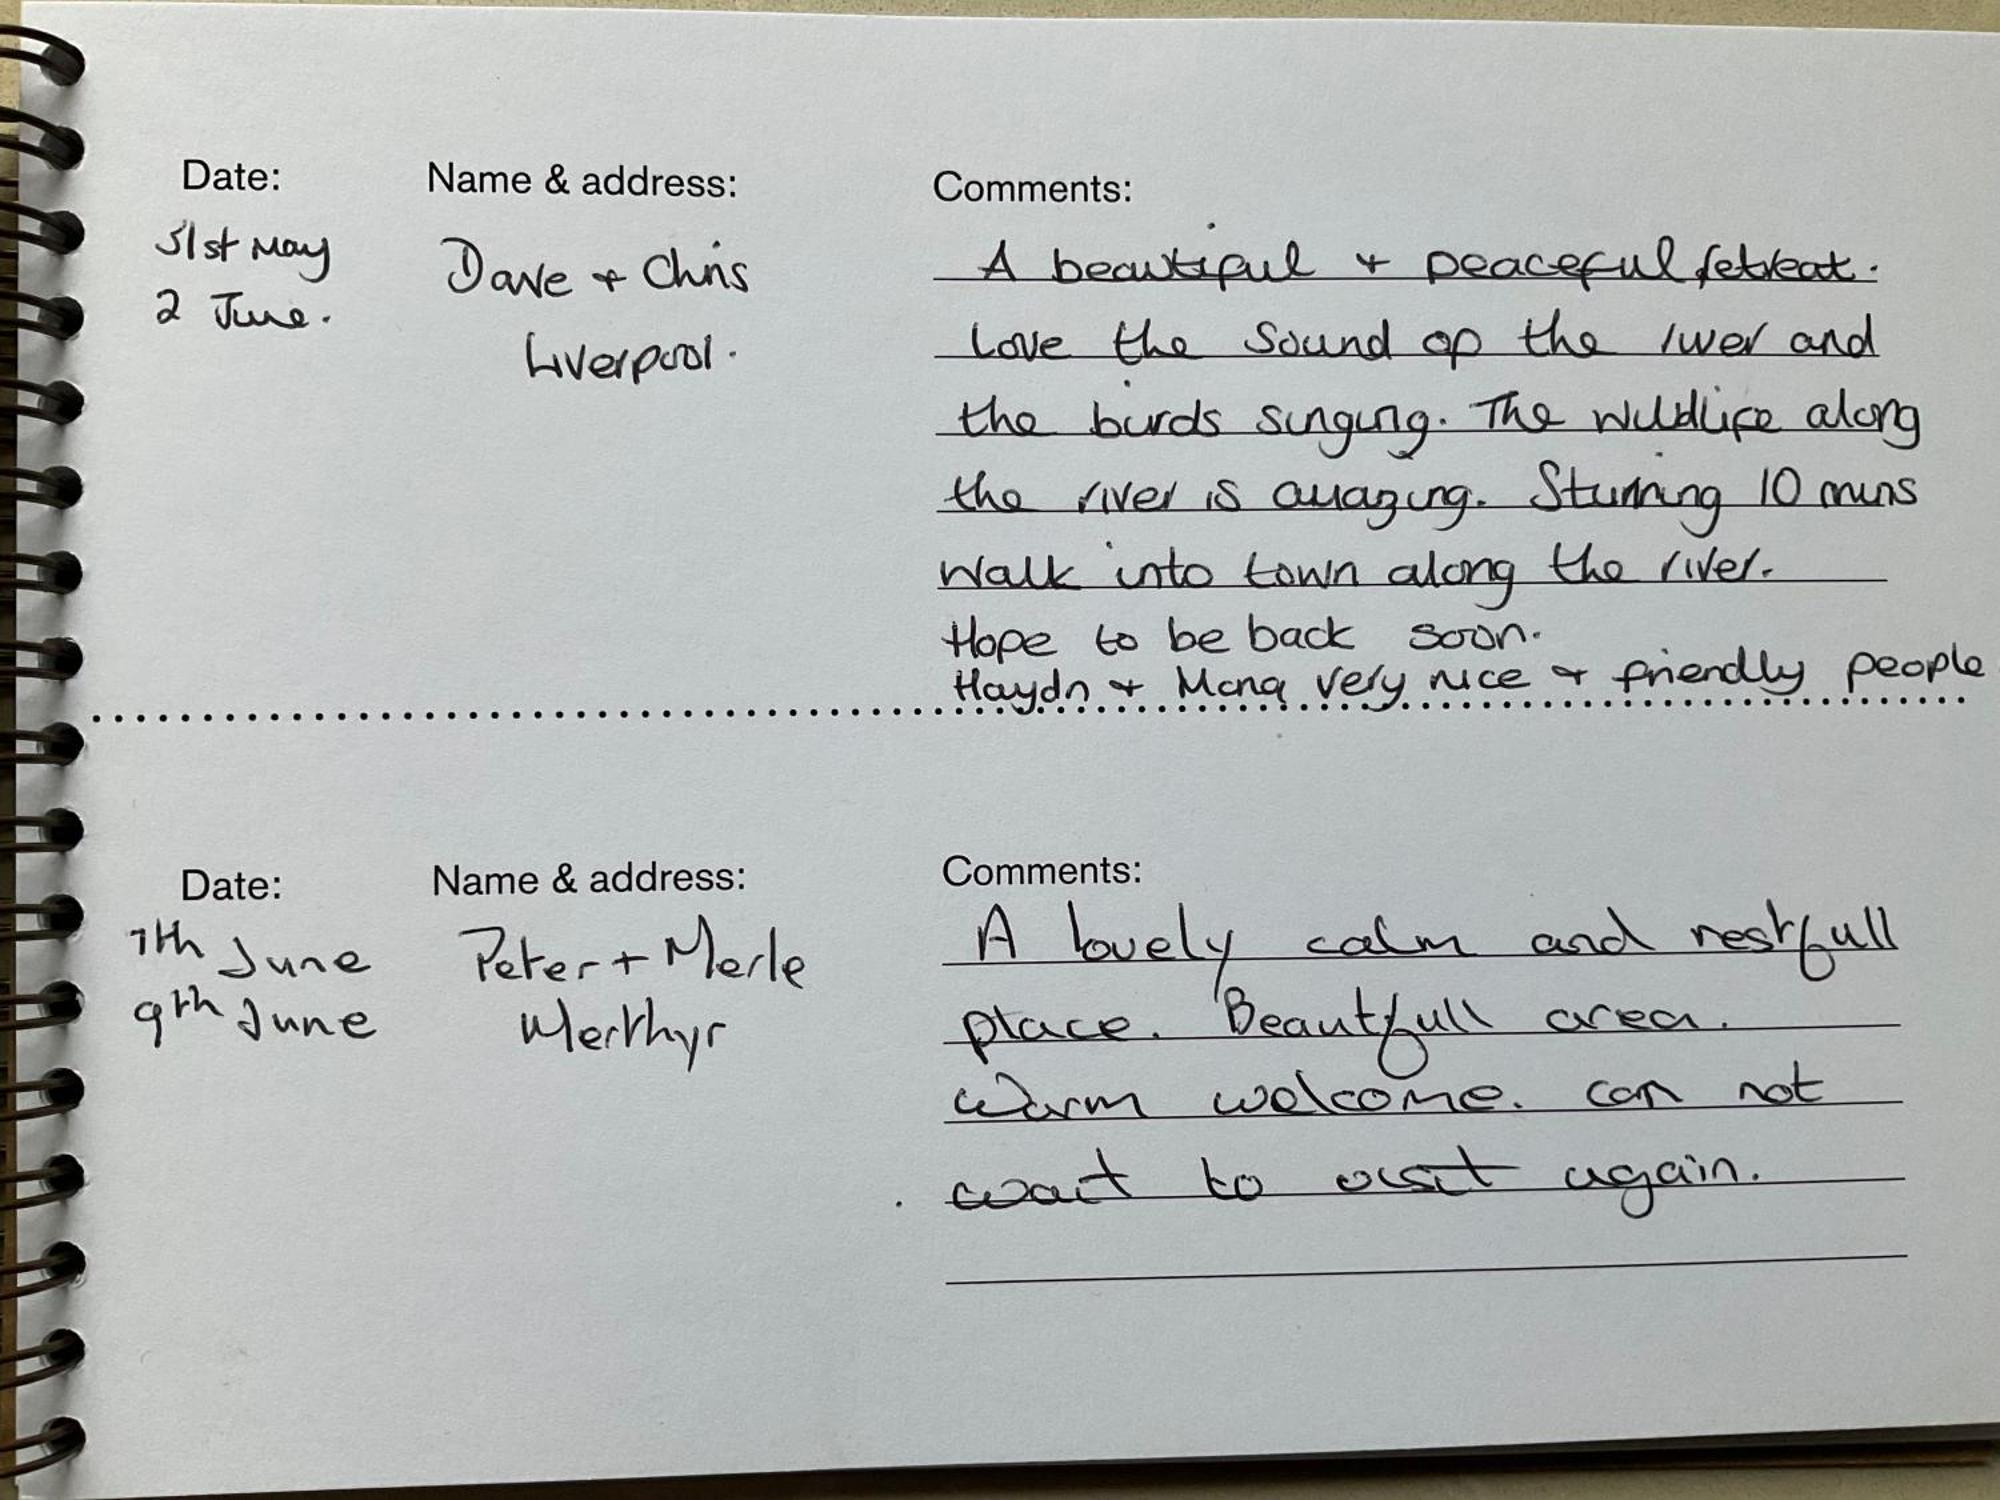 Date: Name & address: Comments:
31st May
2 June.
Dave + Chris
Liverpool.
A beautiful + peaceful retreat.
Love the sound of the river and
the birds singing. The wildlife along
the river is amazing. Stunning 10 mins
walk into town along the river.
Hope to be back soon.
Haydn + Mona very nice + friendly people
Date: Name & address: Comments:
7th June
9th June
Peter + Merle
Merthyr
A lovely calm and restfull
place. Beautfull area.
Warm welcome. can not
wait to visit again.